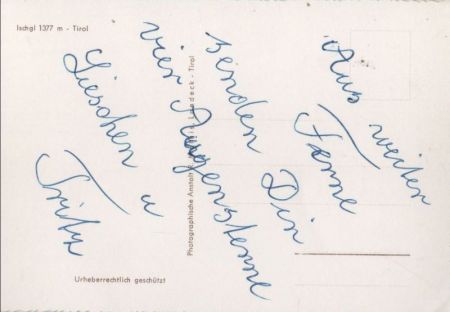 Ischgl 1377 m - Tirol
Aus weiter
Ferne
senden Dir
vier Augensterne
Lieschen u
Photographische Anstalt R. Landeck - Tirol
Urheberrechtlich geschützt